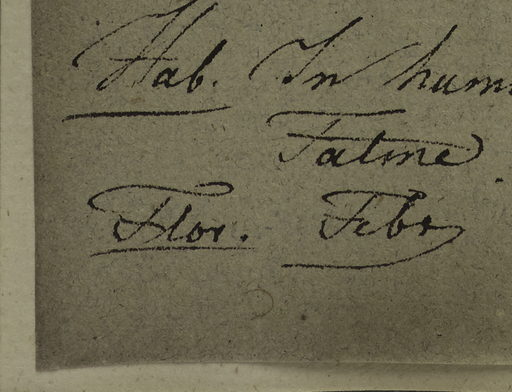 Hab. In hum
Fatme
Flor. Febr